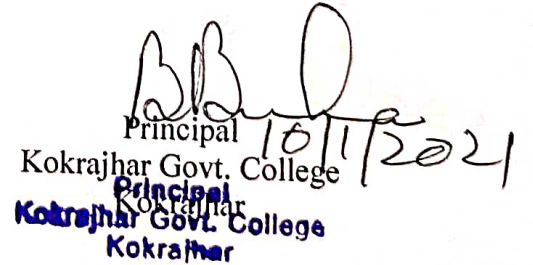 Principal
10/1/2021
Kokrajhar Govt. College
Kokrajhar
Principal
Kokrajhar Govt. College
Kokrajhar